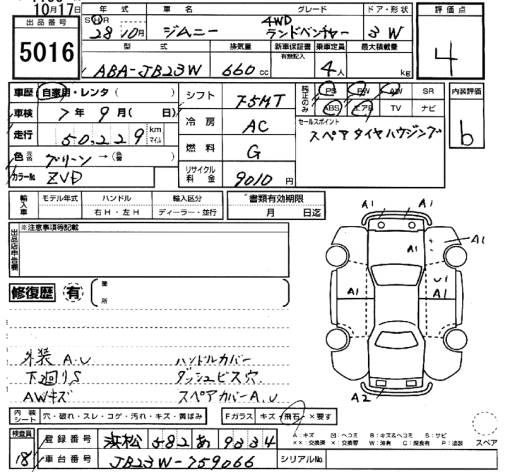 10月17日
出品番号
5016
年式
車名
グレード
ドア・形状
評価点
S H R
28年10月
ジムニー
4WD
ランドベンチャー
3 W
4
型式
排気量
新車保証書
有側記入
乗車定員
最大積載量
ABA-JB23W
660cc
4人
kg
車歴
自家用・レンタ( )
シフト
F5MT
純正のみ
PS
PW
AW
SR
ABS
エアB
TV
ナビ
内装評価
b
車検
7年 9月( 日)
冷房
AC
セールスポイント
スペアタイヤハウジング
走行
50,229
km
マイル
燃料
G
色
グリーン → ( )
リサイクル料金
9010円
カラーNo
ZVD
輸入車
モデル年式
ハンドル
輸入区分
右H・左H
ディーラー・並行
書類有効期限
月 日迄
出品店申告欄
※注意事項等記載
修復歴
有
箇所
A1
A1
A1
A1
A1
U1
A1
A2
外装 A.U
ハンドルカバー
下廻りS
ダッシュビス穴
AWキズ
スペアカバーA.U
内装シート
穴・破れ・スレ・コゲ・汚れ・キズ・黄ばみ
Fガラス
キズ・飛石・×要す
A:キズ
スペア
検査員
18
登録番号
浜松 582 あ 9334
車台番号
JB23W-759066
シリアルNo.